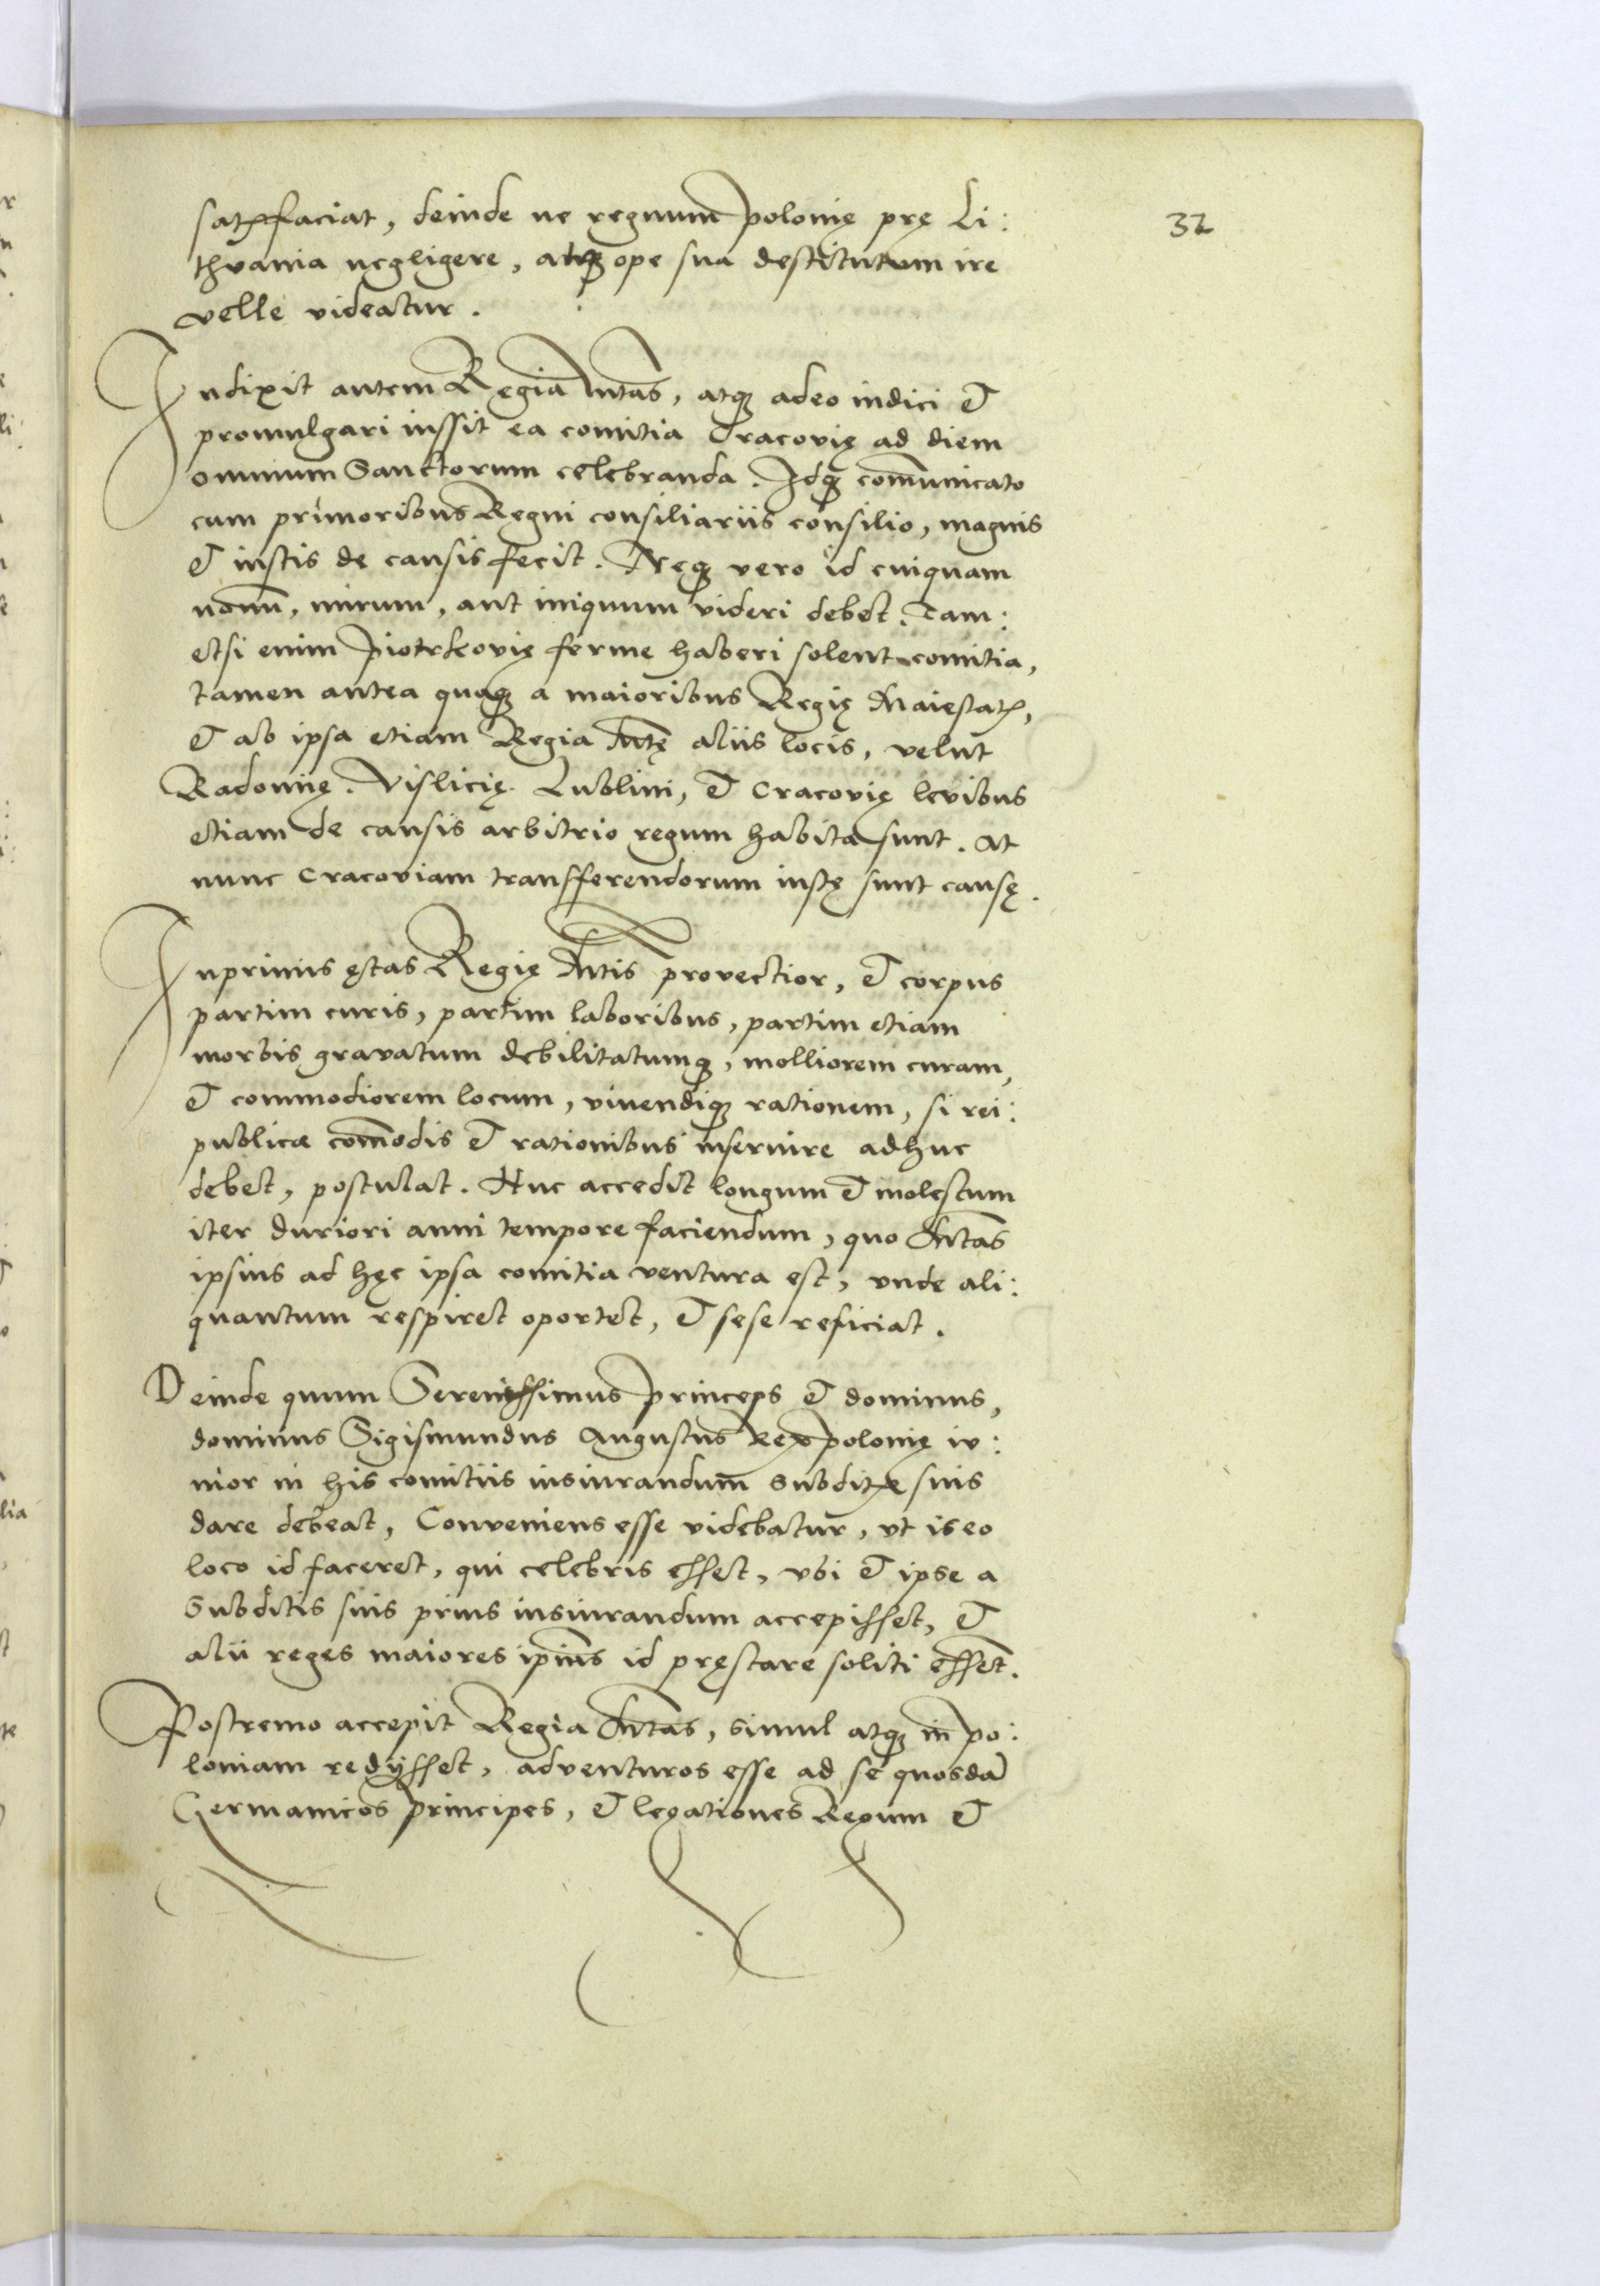 satꝭfaciat, deinde ne regnum polonię prę Li:
32
thvania negligere, atqꝫ ope sua destitutum ire
velle videatur.
Indixit autem Regia Mtas, atqꝫ adeo indici et
promulgari iussit ea comitia Cracovię ad diem
omnium Sanctorum celebranda. Idqꝫ com̄unicato
cum primoribus Regni consiliariis consilio, magnis
et iustis de causis fecit. Neqꝫ vero id cuiquam
nouū, mirum, aut iniquum videri debet. Tam:
etsi enim Piotrkovię ferme haberi solent comitia,
tamen antea quoqꝫ a maioribus Regię Maiestatꝭ,
et ab ipsa etiam Regia Mtę aliis locis, velut
Radomię. Vislicię. Lublini, et Cracovię levibus
etiam de causis arbitrio regum habita sunt. At
nunc Cracoviam transferendorum iustę sunt causę.
Inprimis ętas Regię Mtis provectior, et corpus
partim curis, partim laboribus, partim etiam
morbis gravatum debilitatumqꝫ, molliorem curam,
et commodiorem locum, viuendiqꝫ rationem, si rei:
publicæ com̄odis et rationibus inseruire adhuc
debet, postulat. Huc accedit longum et molestum
iter duriori anni tempore faciendum, quo Mtas
ipsius ad hęc ipsa comitia ventura est, vnde ali:
quantum respiret oportet, et sese reficiat.
Deinde quum Serenissimus princeps et dominus,
dominus Sigismundus Augustus Rex polonię iu:
nior in his comitiis insiurandum subditꝭ suis
dare debeat, Conveniens esse videbatur, vt is eo
loco id faceret, qui celebris esset, vbi et ipse a
Subditis suis prius insiurandum accepisset, et
alii reges maiores ip̄ius id pręstare soliti essent.
Postremo accepit Regia Mtas, simul atqꝫ in po:
loniam redijsset, adventuros esse ad se quosdā
Germanicos principes, et legationes Regum et